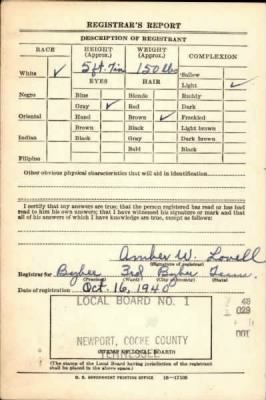 REGISTRAR'S REPORT
DESCRIPTION OF REGISTRANT
RACE HEIGHT (Approx.) WEIGHT (Approx.) COMPLEXION
White ✓ 5 ft. 7 in 150 lbs Sallow
EYES HAIR Light ✓
Negro Blue Blonde Ruddy
Gray ✓ Red Dark
Oriental Hazel Brown ✓ Freckled
Brown Black Light brown
Indian Black Gray Dark brown
Bald Black
Filipino
Other obvious physical characteristics that will aid in identification
I certify that my answers are true; that the person registered has read or has had
read to him his own answers; that I have witnessed his signature or mark and that
all of his answers of which I have knowledge are true, except as follows:
Amber W. Lovell
(Signature of registrar)
Registrar for Bybee 3rd Bybee Tenn.
(Precinct) (Ward) (City or county) (State)
Date of registration Oct. 16, 1940
LOCAL BOARD NO. 1 48
029
NEWPORT, COCKE COUNTY 001
TENNESSEE
(STAMP OF LOCAL BOARD)
(The stamp of the Local Board having jurisdiction of the registrant shall
be placed in the above space.)
U. S. GOVERNMENT PRINTING OFFICE 16-17105